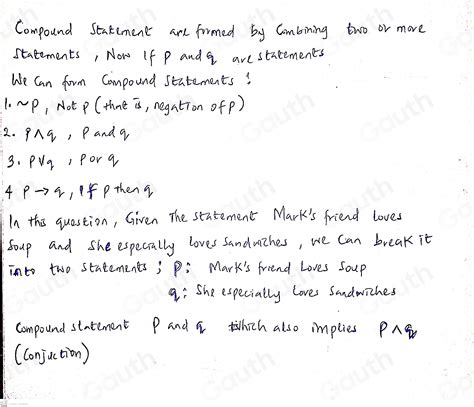 Compound Statement are formed by Combining two or more
Statements, Now If p and q are statements
We Can form Compound Statements :
1. ~P, Not p (that is, negation of p)
2. P∧q , P and q
3. P∨q , P or q
4 P → q, If p then q
In this question, Given The statement Mark's friend Loves
Soup and She especially loves Sandwiches, we Can break it
into two statements ; P: Mark's friend Loves Soup
q: She especially Loves Sandwiches
Compound statement P and q which also implies P∧q
(Conjuction)